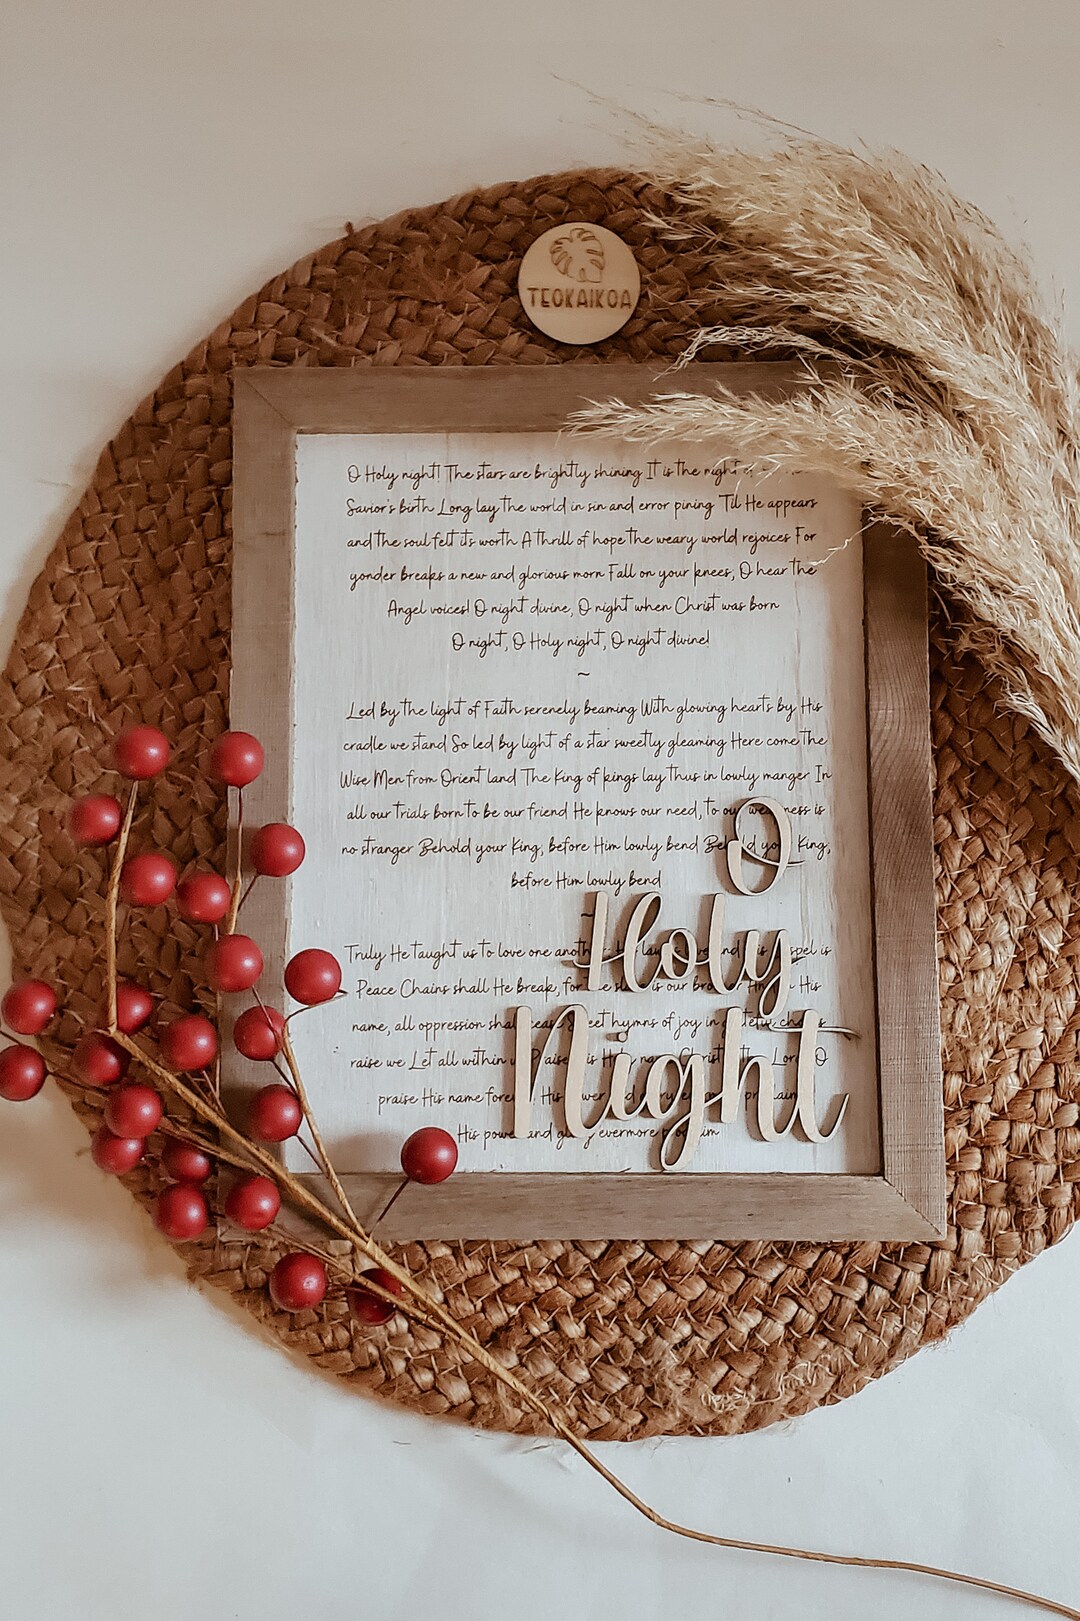 TEOKAIKOA
O Holy night! The stars are brightly shining It is the night
Savior's birth Long lay the world in sin and error pining 'Til He appears
and the soul felt its worth A thrill of hope the weary world rejoices For
yonder breaks a new and glorious morn Fall on your knees, O hear the
Angel voices! O night divine, O night when Christ was born
O night, O Holy night, O night divine!
~
Led by the light of Faith serenely beaming With glowing hearts by His
cradle we stand So led by light of a star sweetly gleaming Here come the
Wise Men from Orient land The King of kings lay thus in lowly manger In
all our trials born to be our friend He knows our need, to our weakness is
no stranger Behold your King, before Him lowly bend Behold your King,
before Him lowly bend
Truly He taught us to love one another; His law is love and His gospel is
Peace Chains shall He break, for the slave is our brother And in His
name, all oppression shall cease Sweet hymns of joy in grateful chorus
raise we Let all within us Praise His Holy name Christ is the Lord O
praise His name forever His power and glory evermore proclaim
His power and glory evermore proclaim
O
Holy
Night